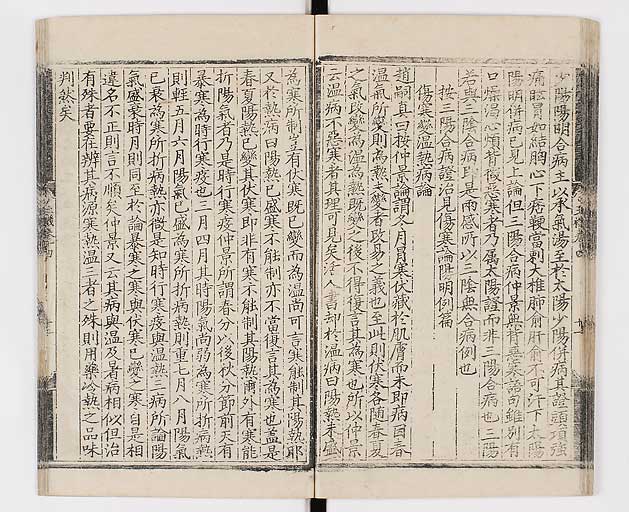 少陽陽明合病主以承氣湯至於太陽少陽併病其證頭項強
痛眩冒如結胸心下痞鞕當刺大椎肺俞肝俞不可汗下太陽
陽明併病已見上論但三陽合病仲景無背惡寒語句雖別有
口燥渴心煩背微惡寒者乃屬太陽證而非三陽合病也三陽
若與三陰合病即是兩感所以三陰無合病例也
按三陽合病證治見傷寒論陽明例篇
傷寒變溫熱病論
趙嗣真曰按仲景論謂冬月冐寒伏藏於肌膚而未即病因春
溫氣所變則為熱夫變者改易之義也至此則伏寒各隨春夏
之氣改變為溫為熱既變之後不得復言其為寒也所以仲景
云溫病不惡寒者其理可見矣活人書却於溫病曰陽熱未盛
為寒所制豈有伏寒既已變而為溫尚可言寒能制其陽熱耶
又於熱病曰陽熱已盛寒不能制亦不當復言其為寒也蓋是
春夏陽熱已變其伏寒即非有寒不能制其陽熱爾外有寒能
折陽氣者乃是時行寒疫仲景所謂春分以後秋分節前天有
暴寒為時行寒疫也三月四月其時陽氣尚弱為寒所折病熱
則輕五月六月陽氣已盛為寒所折病熱則重七月八月陽氣
已衰為寒所折病熱亦微是知時行寒疫與溫熱三病所論陽
氣盛衰時月則同至於論暴寒之寒與伏寒已變之寒自是相
違名不正則言不順矣仲景又云其病與溫及暑病相似但治
有殊者要在辨其病源寒熱溫三者之殊則用藥冷熱之品味
判然矣